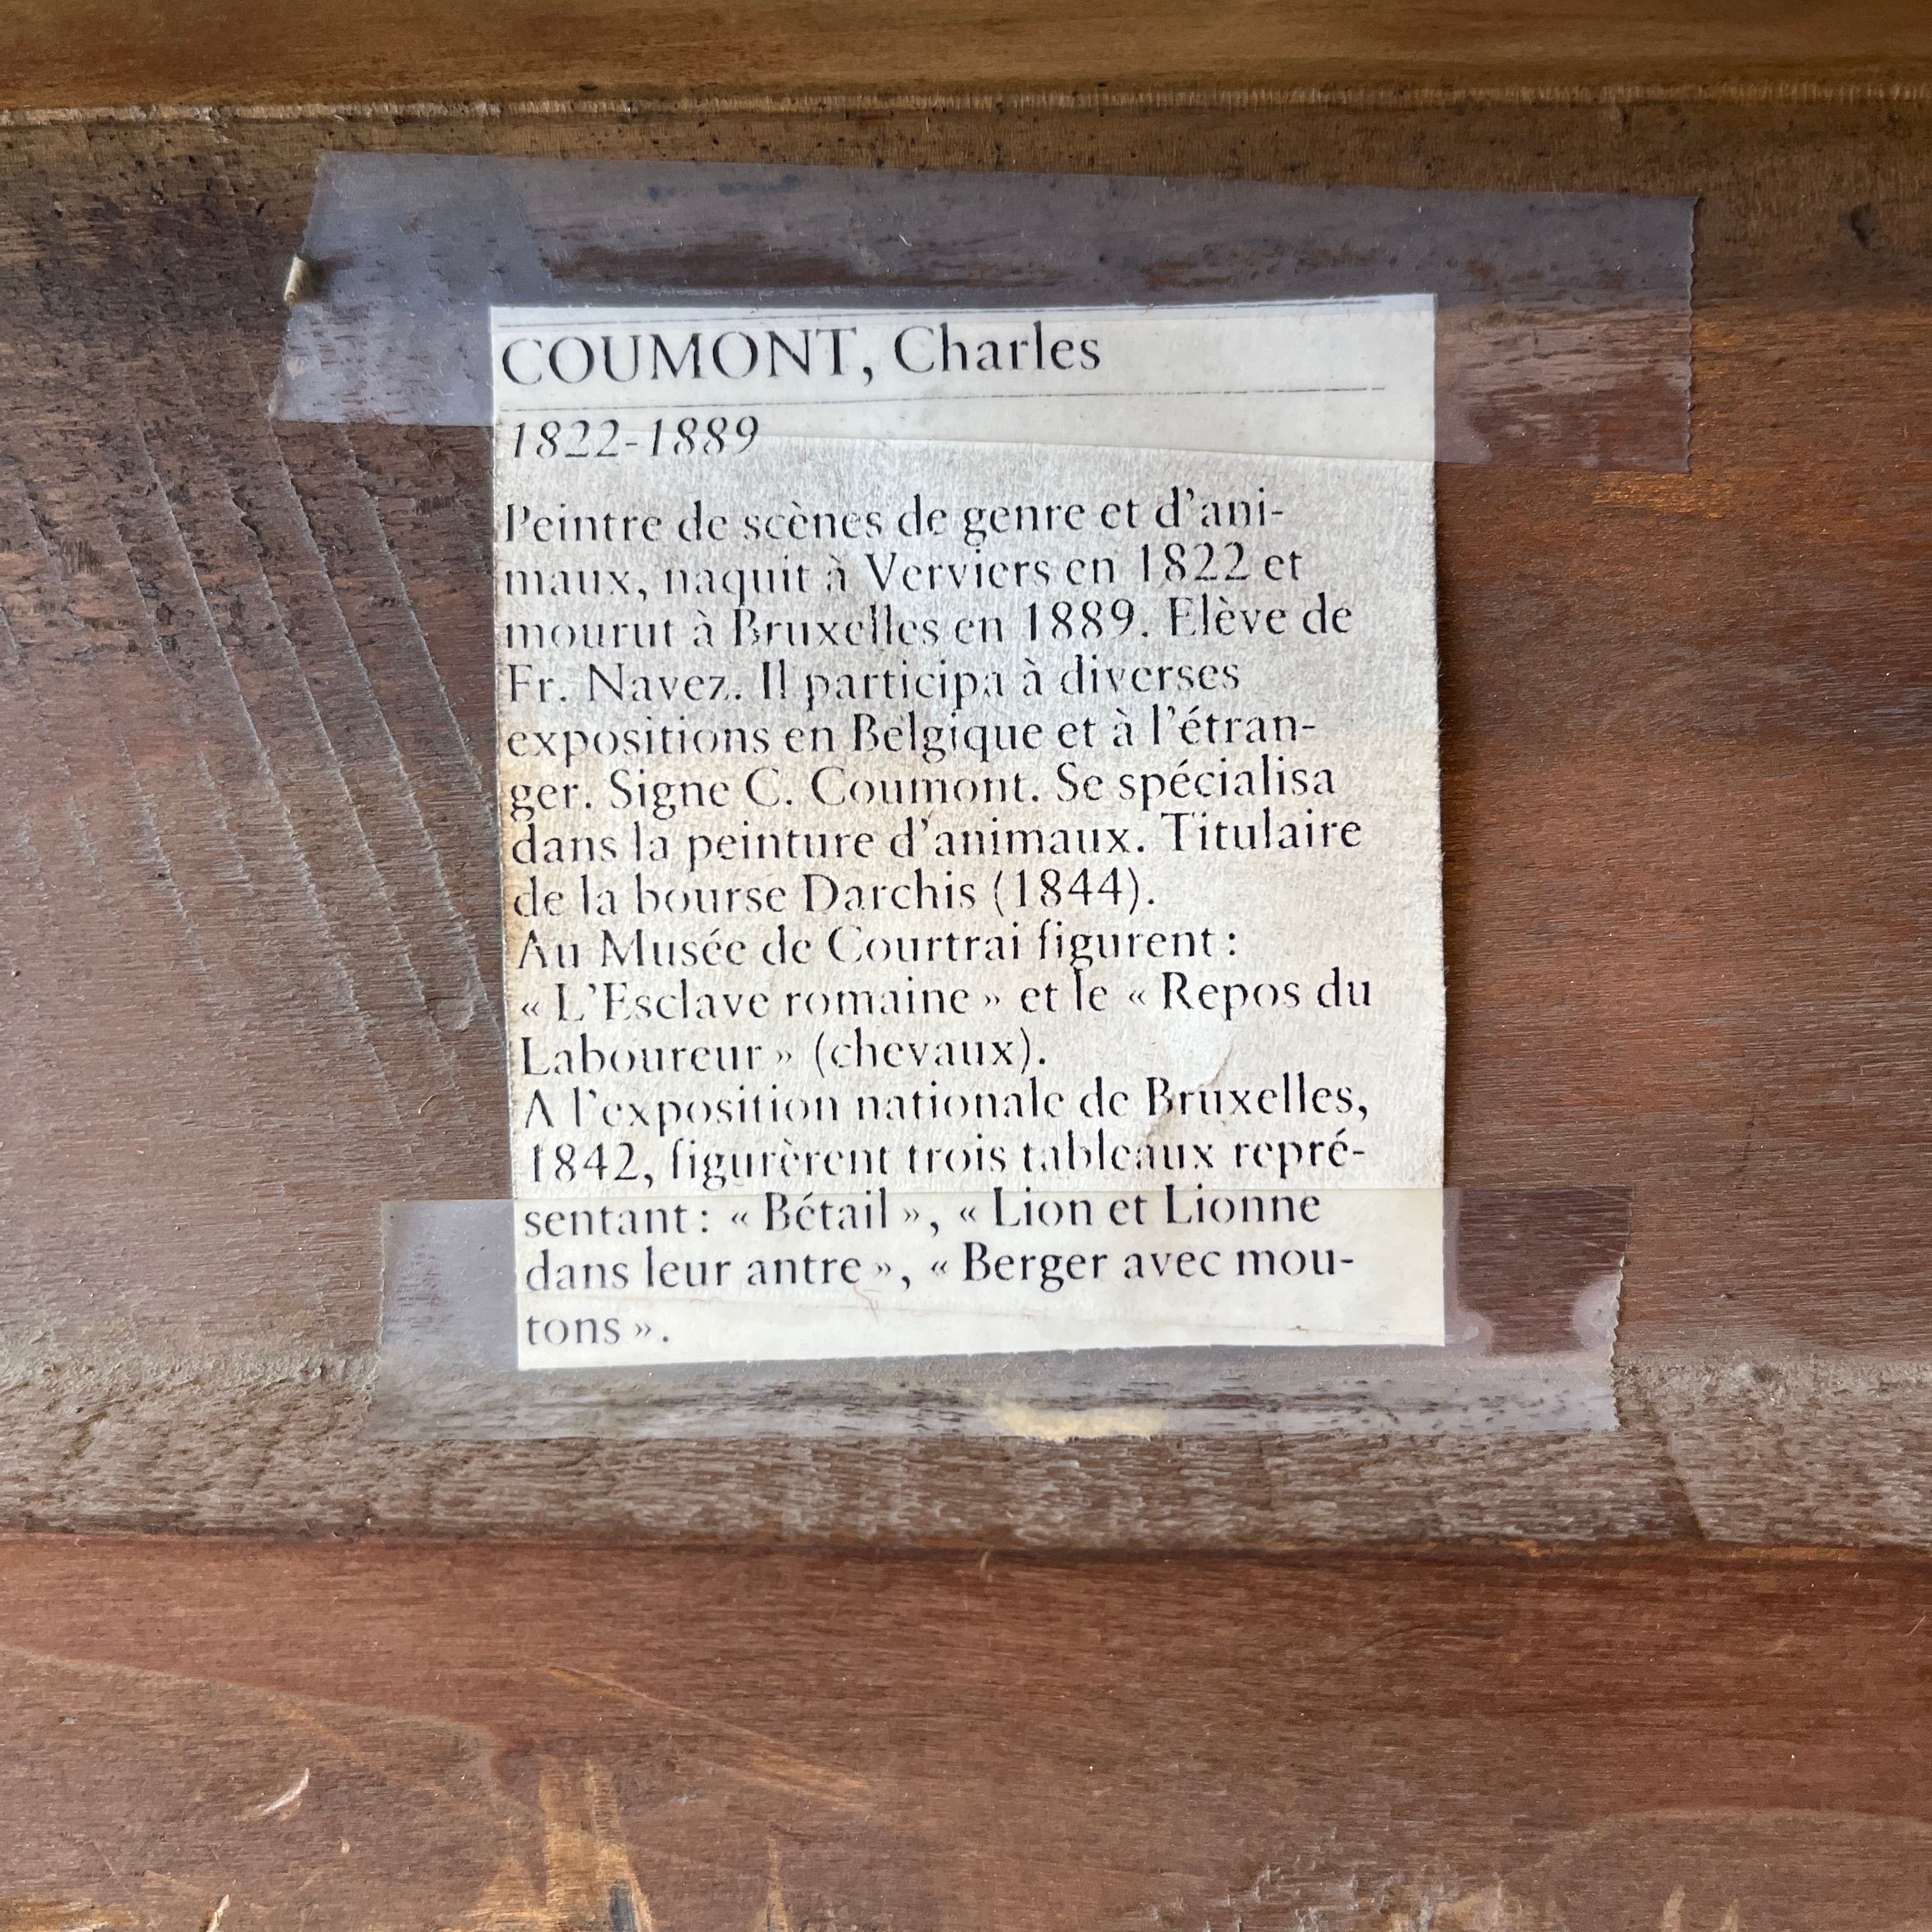 COUMONT, Charles
1822-1889
Peintre de scènes de genre et d'ani-
maux, naquit à Verviers en 1822 et
mourut à Bruxelles en 1889. Elève de
Fr. Navez. Il participa à diverses
expositions en Belgique et à l'étran-
ger. Signe C. Coumont. Se spécialisa
dans la peinture d'animaux. Titulaire
de la bourse Darchis (1844).
Au Musée de Courtrai figurent :
« L'Esclave romaine » et le « Repos du
Laboureur » (chevaux).
A l'exposition nationale de Bruxelles,
1842, figurèrent trois tableaux repré-
sentant : « Bétail », « Lion et Lionne
dans leur antre », « Berger avec mou-
tons ».